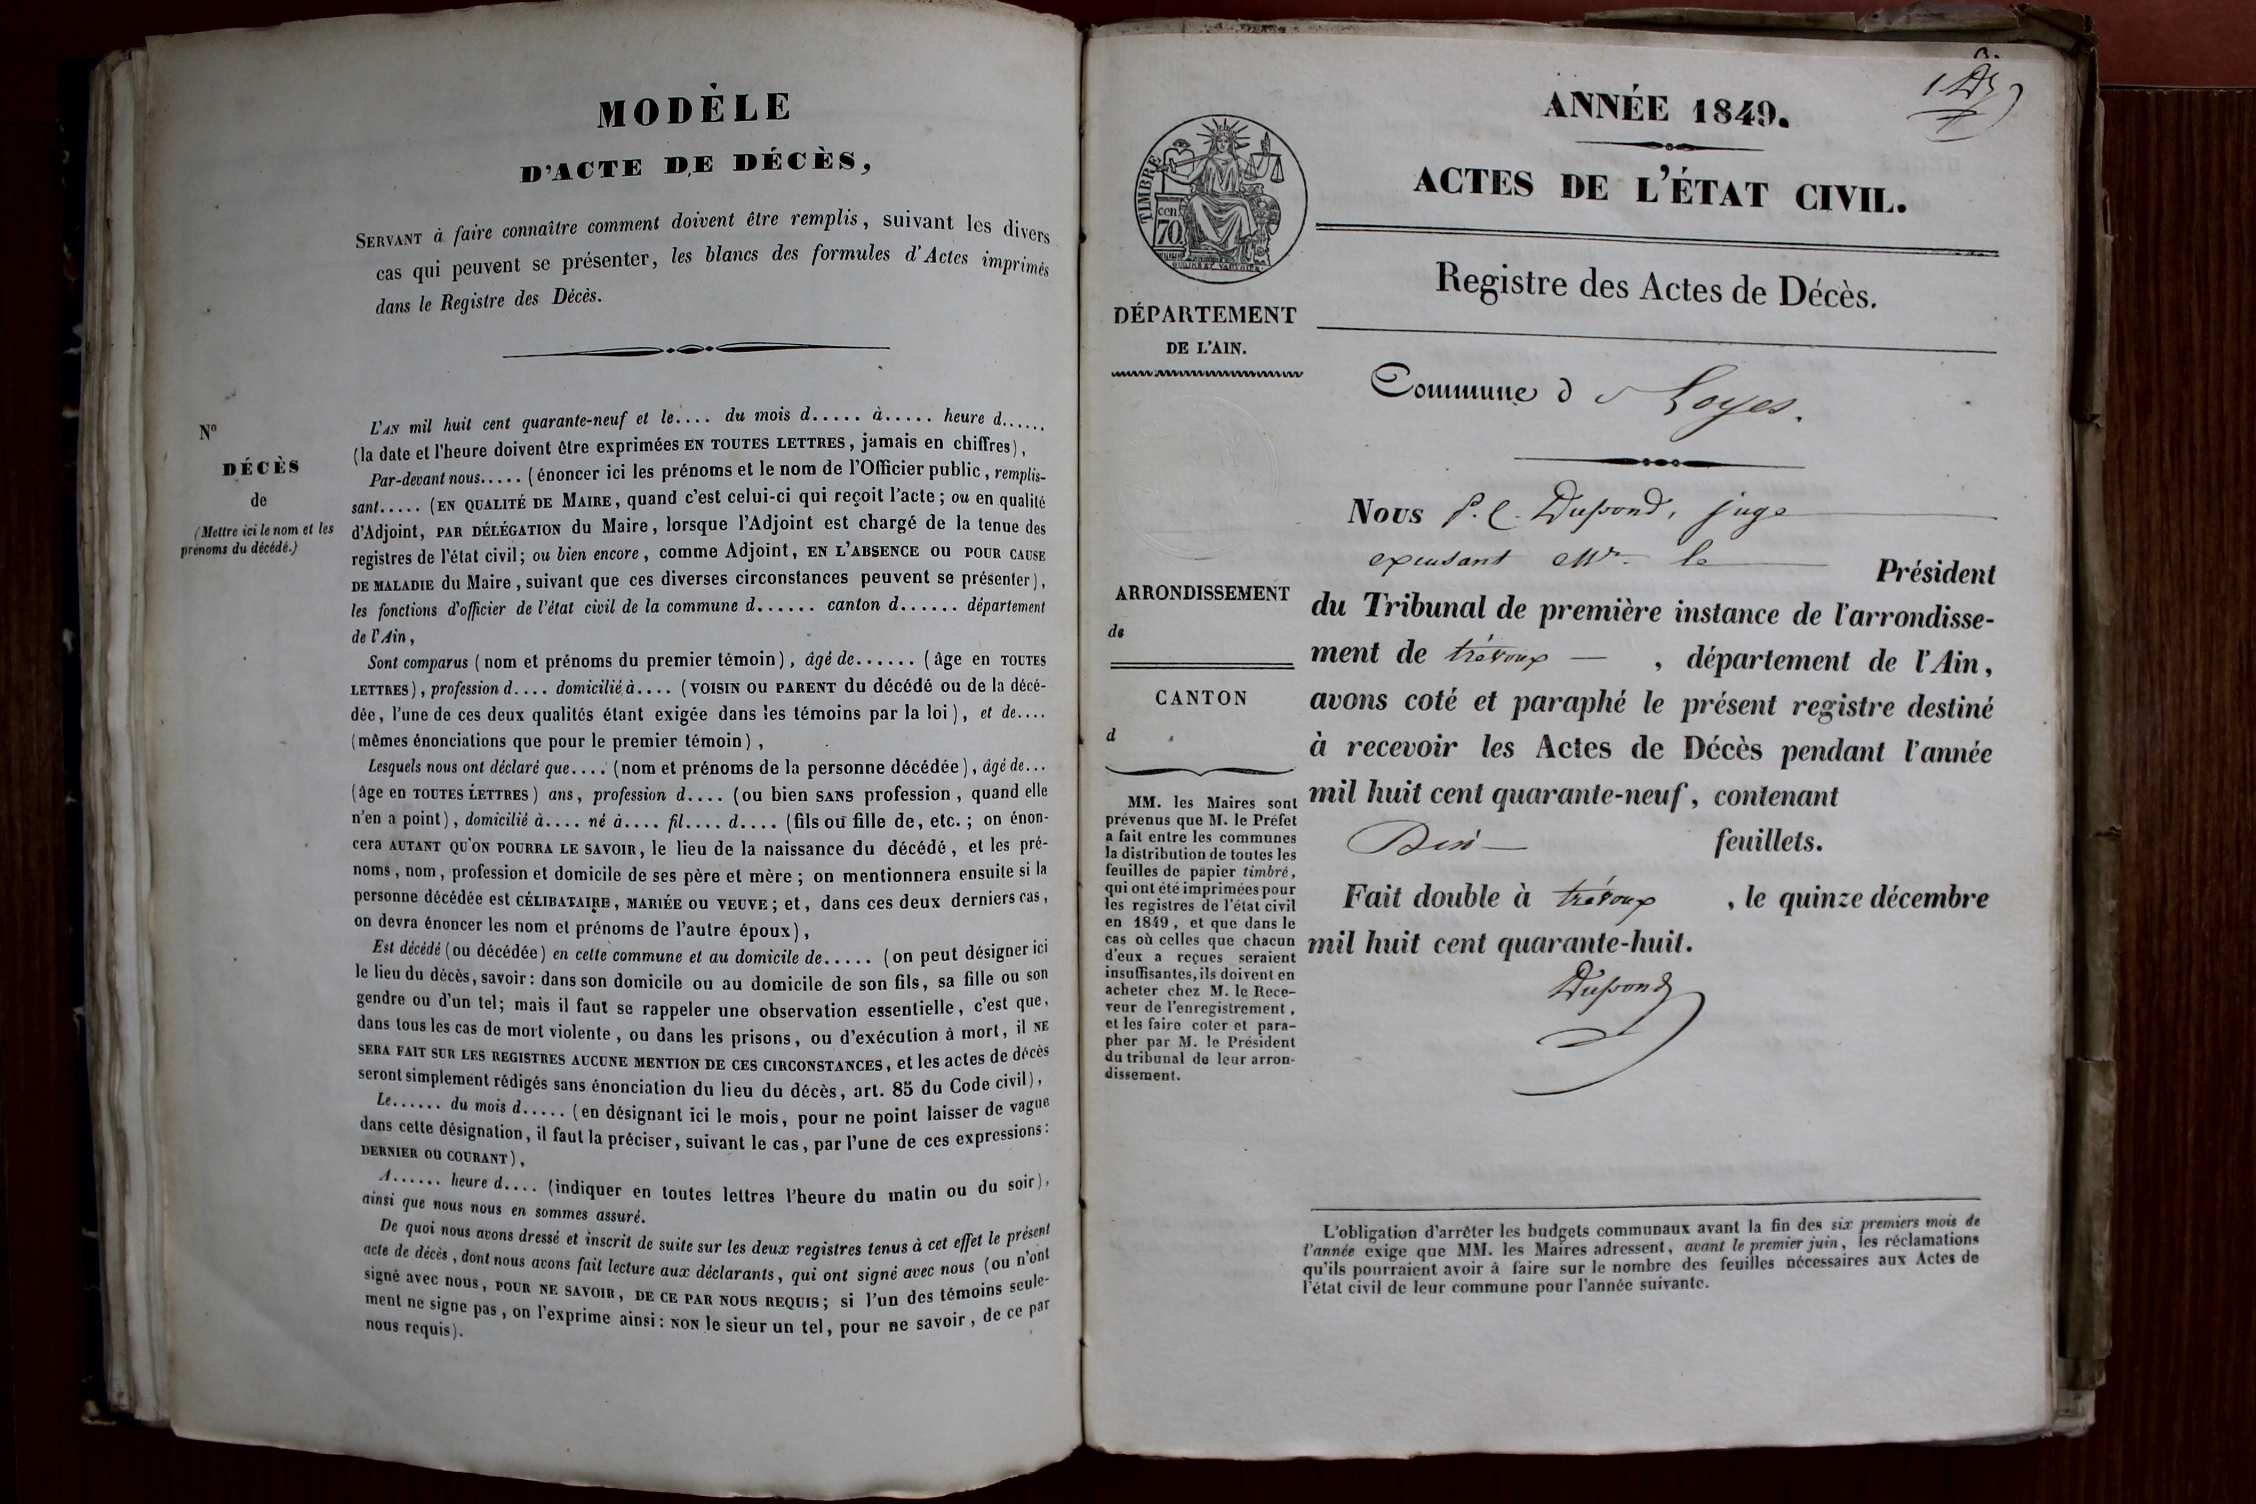 MODÈLE
D'ACTE DE DÉCÈS,
SERVANT à faire connaître comment doivent être remplis, suivant les divers
cas qui peuvent se présenter, les blancs des formules d'Actes imprimés
dans le Registre des Décès.
N°
DÉCÈS
de
(Mettre ici le nom et les
prénoms du décédé.)
L'AN mil huit cent quarante-neuf et le.... du mois d..... à..... heure d......
(la date et l'heure doivent être exprimées EN TOUTES LETTRES, jamais en chiffres),
Par-devant nous..... (énoncer ici les prénoms et le nom de l'Officier public, remplis-
sant..... (EN QUALITÉ DE MAIRE, quand c'est celui-ci qui reçoit l'acte; ou en qualité
d'Adjoint, PAR DÉLÉGATION du Maire, lorsque l'Adjoint est chargé de la tenue des
registres de l'état civil; ou bien encore, comme Adjoint, EN L'ABSENCE OU POUR CAUSE
DE MALADIE du Maire, suivant que ces diverses circonstances peuvent se présenter),
les fonctions d'officier de l'état civil de la commune d...... canton d...... département
de l'Ain,
Sont comparus (nom et prénoms du premier témoin), âgé de...... (âge en TOUTES
LETTRES), profession d.... domicilié à.... (VOISIN OU PARENT du décédé ou de la décé-
dée, l'une de ces deux qualités étant exigée dans les témoins par la loi), et de....
(mêmes énonciations que pour le premier témoin),
Lesquels nous ont déclaré que.... (nom et prénoms de la personne décédée), âgé de...
(âge en TOUTES LETTRES) ans, profession d.... (ou bien SANS profession, quand elle
n'en a point), domicilié à.... né à.... fil.... d.... (fils ou fille de, etc.; on énon-
cera AUTANT QU'ON POURRA LE SAVOIR, le lieu de la naissance du décédé, et les pré-
noms, nom, profession et domicile de ses père et mère; on mentionnera ensuite si la
personne décédée est CÉLIBATAIRE, MARIÉE OU VEUVE; et, dans ces deux derniers cas,
on devra énoncer les nom et prénoms de l'autre époux),
Est décédé (ou décédée) en cette commune et au domicile de..... (on peut désigner ici
le lieu du décès, savoir: dans son domicile ou au domicile de son fils, sa fille ou son
gendre ou d'un tel; mais il faut se rappeler une observation essentielle, c'est que,
dans tous les cas de mort violente, ou dans les prisons, ou d'exécution à mort, il NE
SERA FAIT SUR LES REGISTRES AUCUNE MENTION DE CES CIRCONSTANCES, et les actes de décès
seront simplement rédigés sans énonciation du lieu du décès, art. 85 du Code civil),
Le...... du mois d..... (en désignant ici le mois, pour ne point laisser de vague
dans cette désignation, il faut la préciser, suivant le cas, par l'une de ces expressions:
DERNIER OU COURANT),
A...... heure d.... (indiquer en toutes lettres l'heure du matin ou du soir),
ainsi que nous nous en sommes assuré.
De quoi nous avons dressé et inscrit de suite sur les deux registres tenus à cet effet le présent
acte de décès, dont nous avons fait lecture aux déclarants, qui ont signé avec nous (ou n'ont
signé avec nous, POUR NE SAVOIR, DE CE PAR NOUS REQUIS; si l'un des témoins seule-
ment ne signe pas, on l'exprime ainsi: NON le sieur un tel, pour ne savoir, de ce par
nous requis).
TIMBRE
cen
70
DÉPARTEMENT
DE L'AIN.
ARRONDISSEMENT
de
CANTON
d
MM. les Maires sont
prévenus que M. le Préfet
a fait entre les communes
la distribution de toutes les
feuilles de papier timbré,
qui ont été imprimées pour
les registres de l'état civil
en 1849, et que dans le
cas où celles que chacun
d'eux a reçues seraient
insuffisantes, ils doivent en
acheter chez M. le Rece-
veur de l'enregistrement,
et les faire coter et para-
pher par M. le Président
du tribunal de leur arron-
dissement.
ANNÉE 1849.
ACTES DE L'ÉTAT CIVIL.
Registre des Actes de Décès.
Commune d Loyes.
Nous P. C. Dupond, juge
Mr. le Président
du Tribunal de première instance de l'arrondisse-
ment de trévoux — , département de l'Ain,
avons coté et paraphé le présent registre destiné
à recevoir les Actes de Décès pendant l'année
mil huit cent quarante-neuf, contenant
feuillets.
Fait double à trévoux , le quinze décembre
mil huit cent quarante-huit.
Dupond
L'obligation d'arrêter les budgets communaux avant la fin des six premiers mois de
l'année exige que MM. les Maires adressent, avant le premier juin, les réclamations
qu'ils pourraient avoir à faire sur le nombre des feuilles nécessaires aux Actes de
l'état civil de leur commune pour l'année suivante.